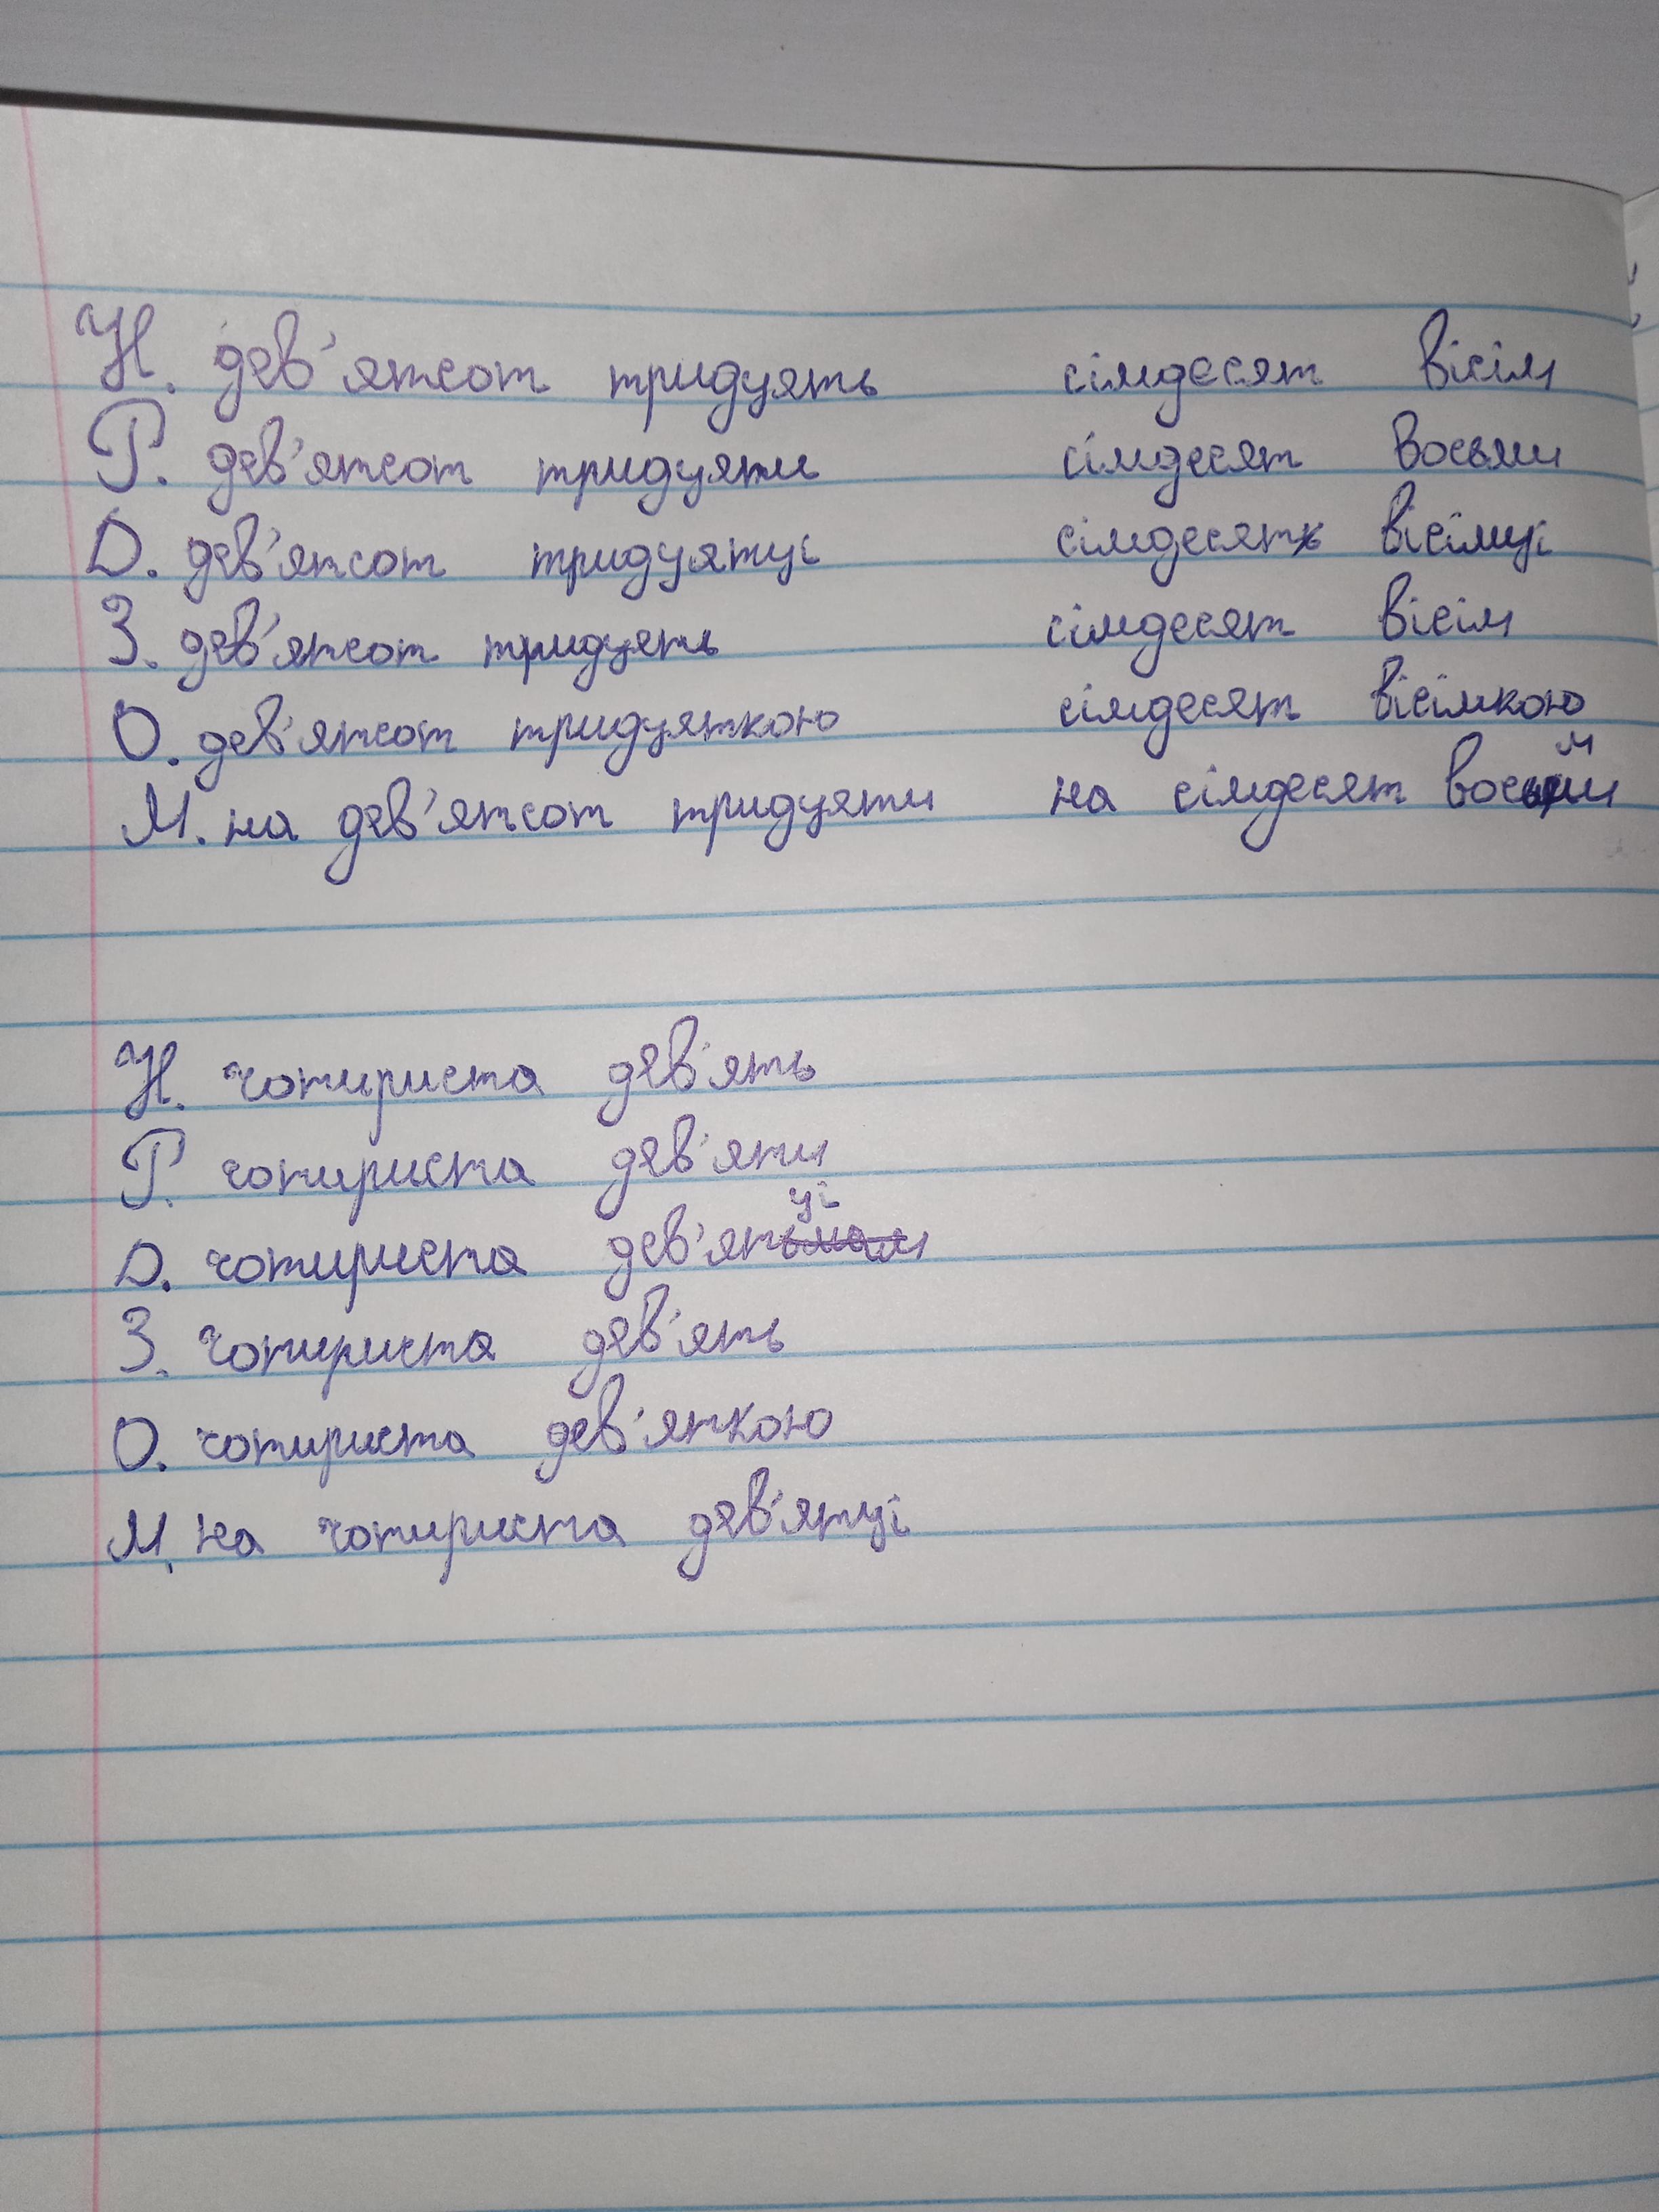 Н. дев'ятсот тридцять сімдесят вісім
Р. дев'ятсот тридцяти сімдесят восьми
Д. дев'ятсот тридцятці сімдесят вісімці
З. дев'ятсот тридцять сімдесят вісім
О. дев'ятсот тридцяткою сімдесят вісімкою
М. на дев'ятсот тридцяти на сімдесят восьми
Н. чотириста дев'ять
Р. чотириста дев'яти
Д. чотириста дев'ятці
З. чотириста дев'ять
О. чотириста дев'яткою
М. на чотириста дев'ятці